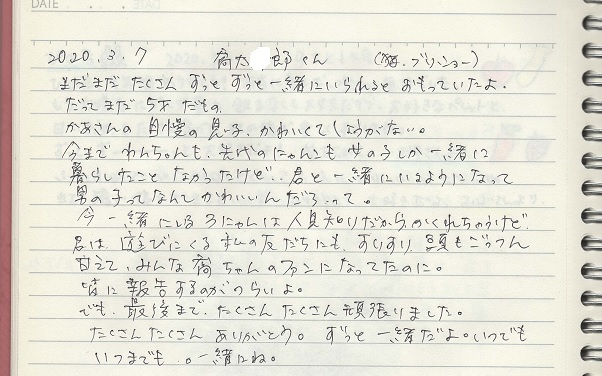 DATE
2020.3.7 喬太 郎くん (猫・ブリショー)
まだまだ たくさん ずっと ずっと 一緒にいられると おもっていたよ。
だってまだ 5才 だもの。
かあさんの 自慢の 息子、かわいくてしょうがない。
今まで わんちゃんも、先代の にゃんこも 女の子しか 一緒に
暮らしたこと なかったけど、君と 一緒に いるようになって
男の子って なんて かわいいんだろって。
今 一緒にいる 3にゃんは 人見知りだから、かくれちゃうけど
君は、遊びにくる 友だちにも、すりすり、頭も ごっつん
甘えて、みんな 喬ちゃんの ファンに なってたのに。
皆に 報告するのがつらいよ。
でも、最後まで、たくさん たくさん 頑張りました。
たくさん たくさん ありがとう。 ずっと 一緒だよ。いつでも
いつまでも 。一緒にね。